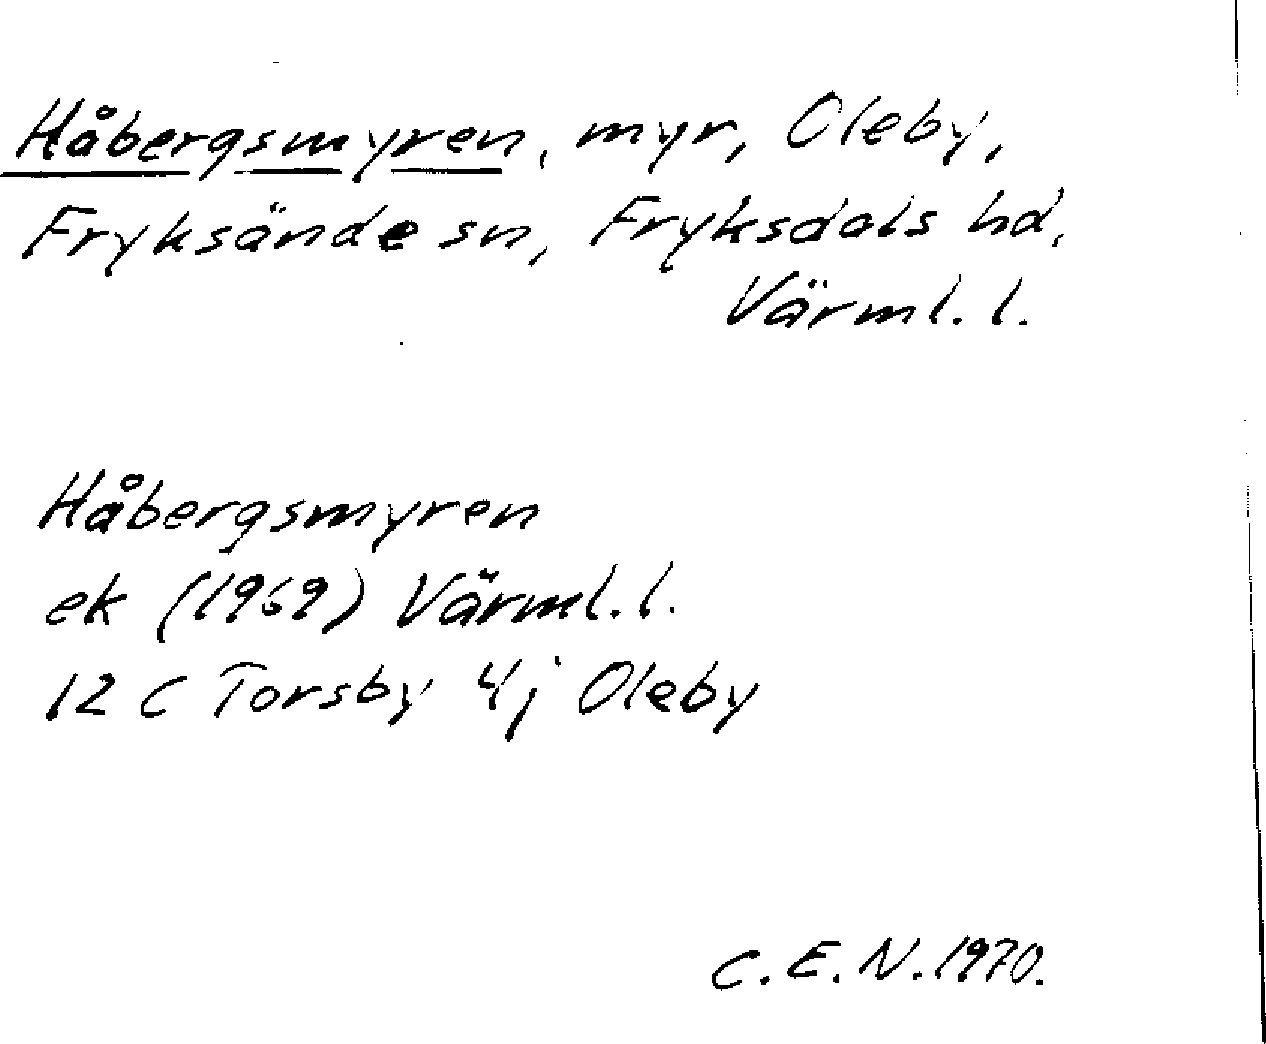 Håbergsmyren, myr, Oleby,
Fryksände sn, Fryksdals hd,
Värml. l.
Håbergsmyren
ek (1969) Värml. l.
12 C Torsby 4j Oleby
C. E. N. 1970.